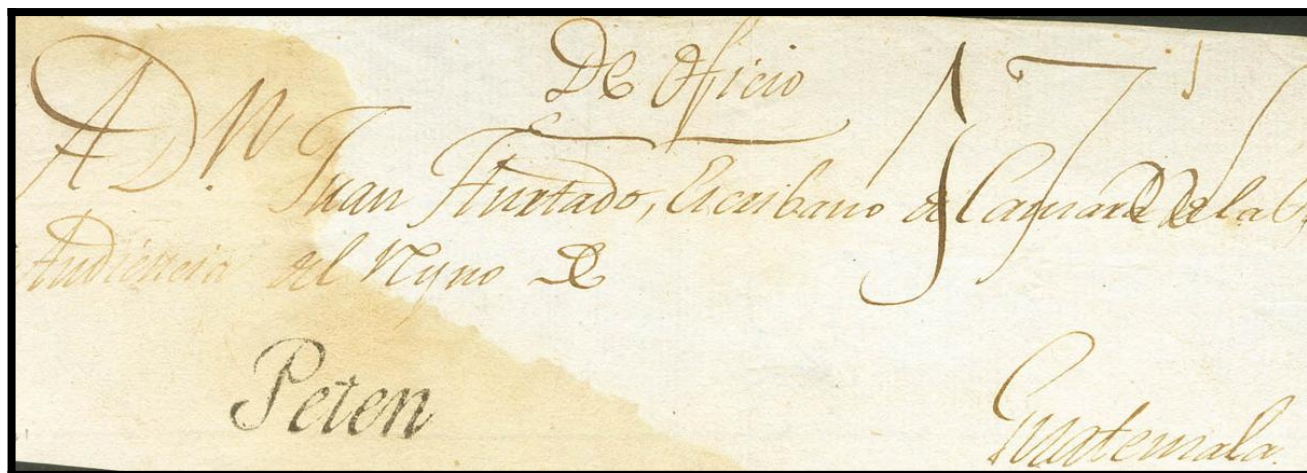 De Oficio
A D.n Juan Hurtado, Escribano de Camara de la
Audiencia del Reyno de
Peten
Guatemala.